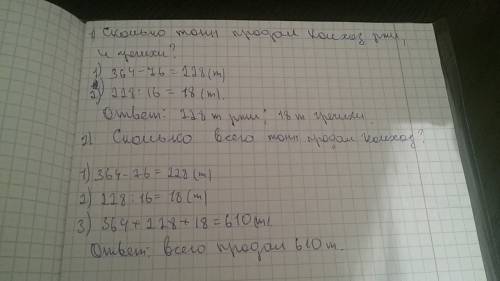 1) Сколько тонн продал колхоз ржи,
и гречихи?
1) 364-76 = 228 (т)
2) 228:16 = 18 (т).
Ответ: 228 т ржи; 18 т гречихи.
2) Сколько всего тонн продал колхоз?
1) 364-76 = 228 (т)
2) 228:16 = 18 (т)
3) 364+228+18=610 (т).
Ответ: всего продал 610 т.